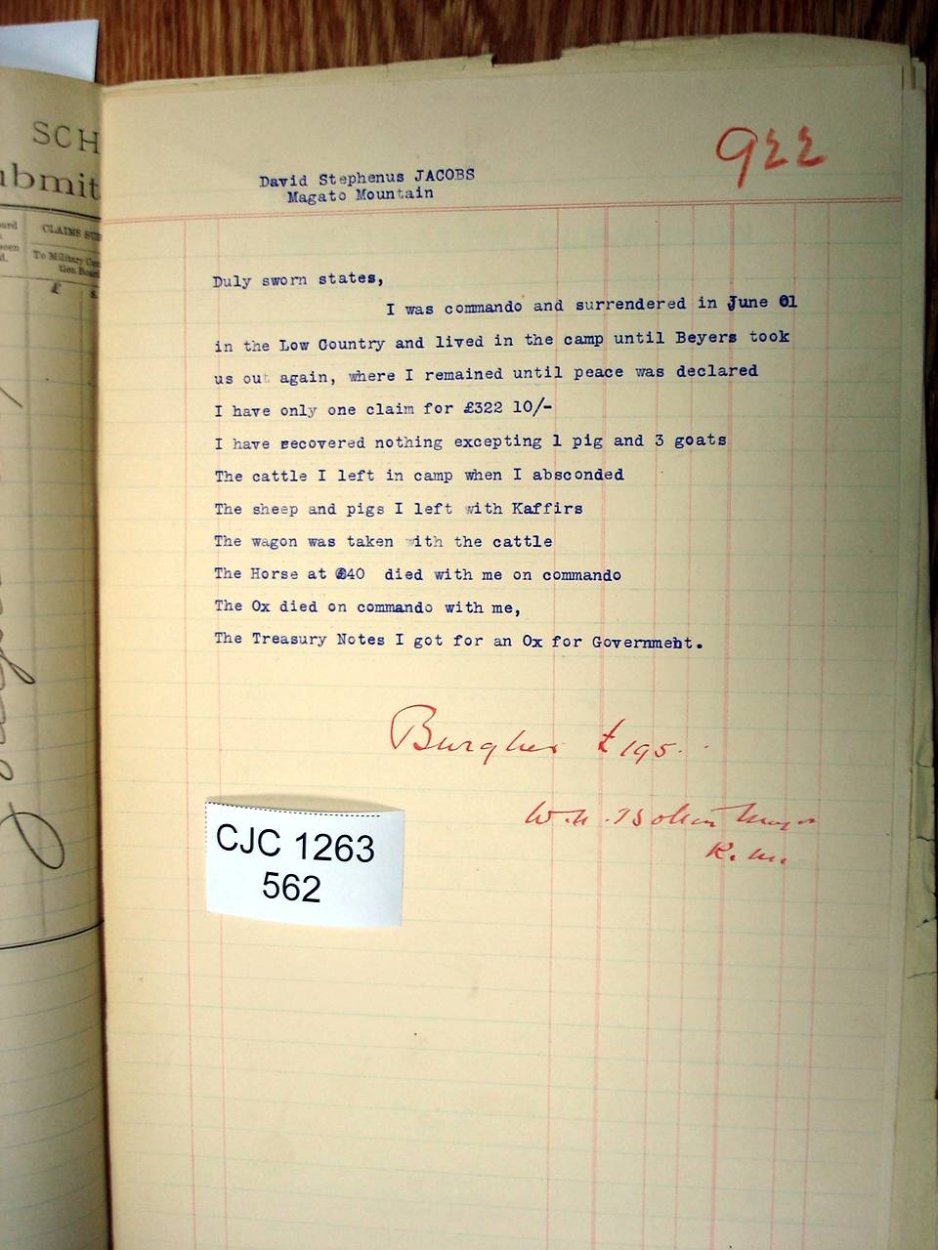 SCH
ubmit
CLAIMS SUB
To Military Com
tion Board
£ s.
922
David Stephenus JACOBS
Magato Mountain
Duly sworn states,
I was commando and surrendered in June 01
in the Low Country and lived in the camp until Beyers took
us out again, where I remained until peace was declared
I have only one claim for £322 10/-
I have recovered nothing excepting 1 pig and 3 goats
The cattle I left in camp when I absconded
The sheep and pigs I left with Kaffirs
The wagon was taken with the cattle
The Horse at £40 died with me on commando
The Ox died on commando with me,
The Treasury Notes I got for an Ox for Government.
Burgher £195.
W.H.
R.M.
CJC 1263
562